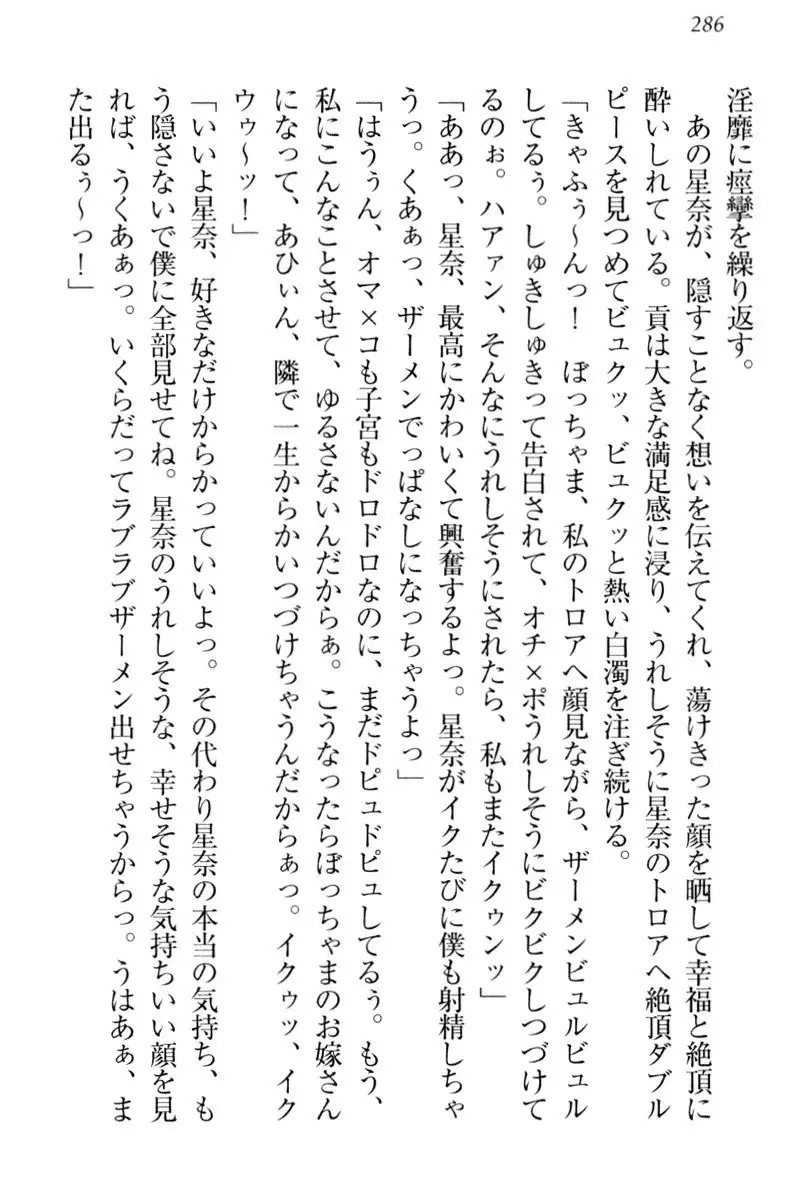 286
淫靡に痙攣を繰り返す。
　あの星奈が、隠すことなく想いを伝えてくれ、蕩けきった顔を晒して幸福と絶頂に
酔いしれている。貢は大きな満足感に浸り、うれしそうに星奈のトロアヘ絶頂ダブル
ピースを見つめてビュクッ、ビュクッと熱い白濁を注ぎ続ける。
「きゃふぅ～んっ！　ぼっちゃま、私のトロアヘ顔見ながら、ザーメンビュルビュル
してるぅ。しゅきしゅきって告白されて、オチ×ポうれしそうにビクビクしつづけて
るのぉ。ハアァン、そんなにうれしそうにされたら、私もまたイクゥンッ」
「ああっ、星奈、最高にかわいくて興奮するよっ。星奈がイクたびに僕も射精しちゃ
うっ。くあぁっ、ザーメンでっぱなしになっちゃうよっ」
「はうぅん、オマ×コも子宮もドロドロなのに、まだドピュドピュしてるぅ。もう、
私にこんなことさせて、ゆるさないんだからぁ。こうなったらぼっちゃまのお嫁さん
になって、あひぃん、隣で一生からかいつづけちゃうんだからぁっ。イクゥッ、イク
ウゥ～ッ！」
「いいよ星奈、好きなだけからかっていいよっ。その代わり星奈の本当の気持ち、も
う隠さないで僕に全部見せてね。星奈のうれしそうな、幸せそうな気持ちいい顔を見
れば、うくあぁっ。いくらだってラブラブザーメン出せちゃうからっ。うはあぁ、ま
た出るぅ～っ！」